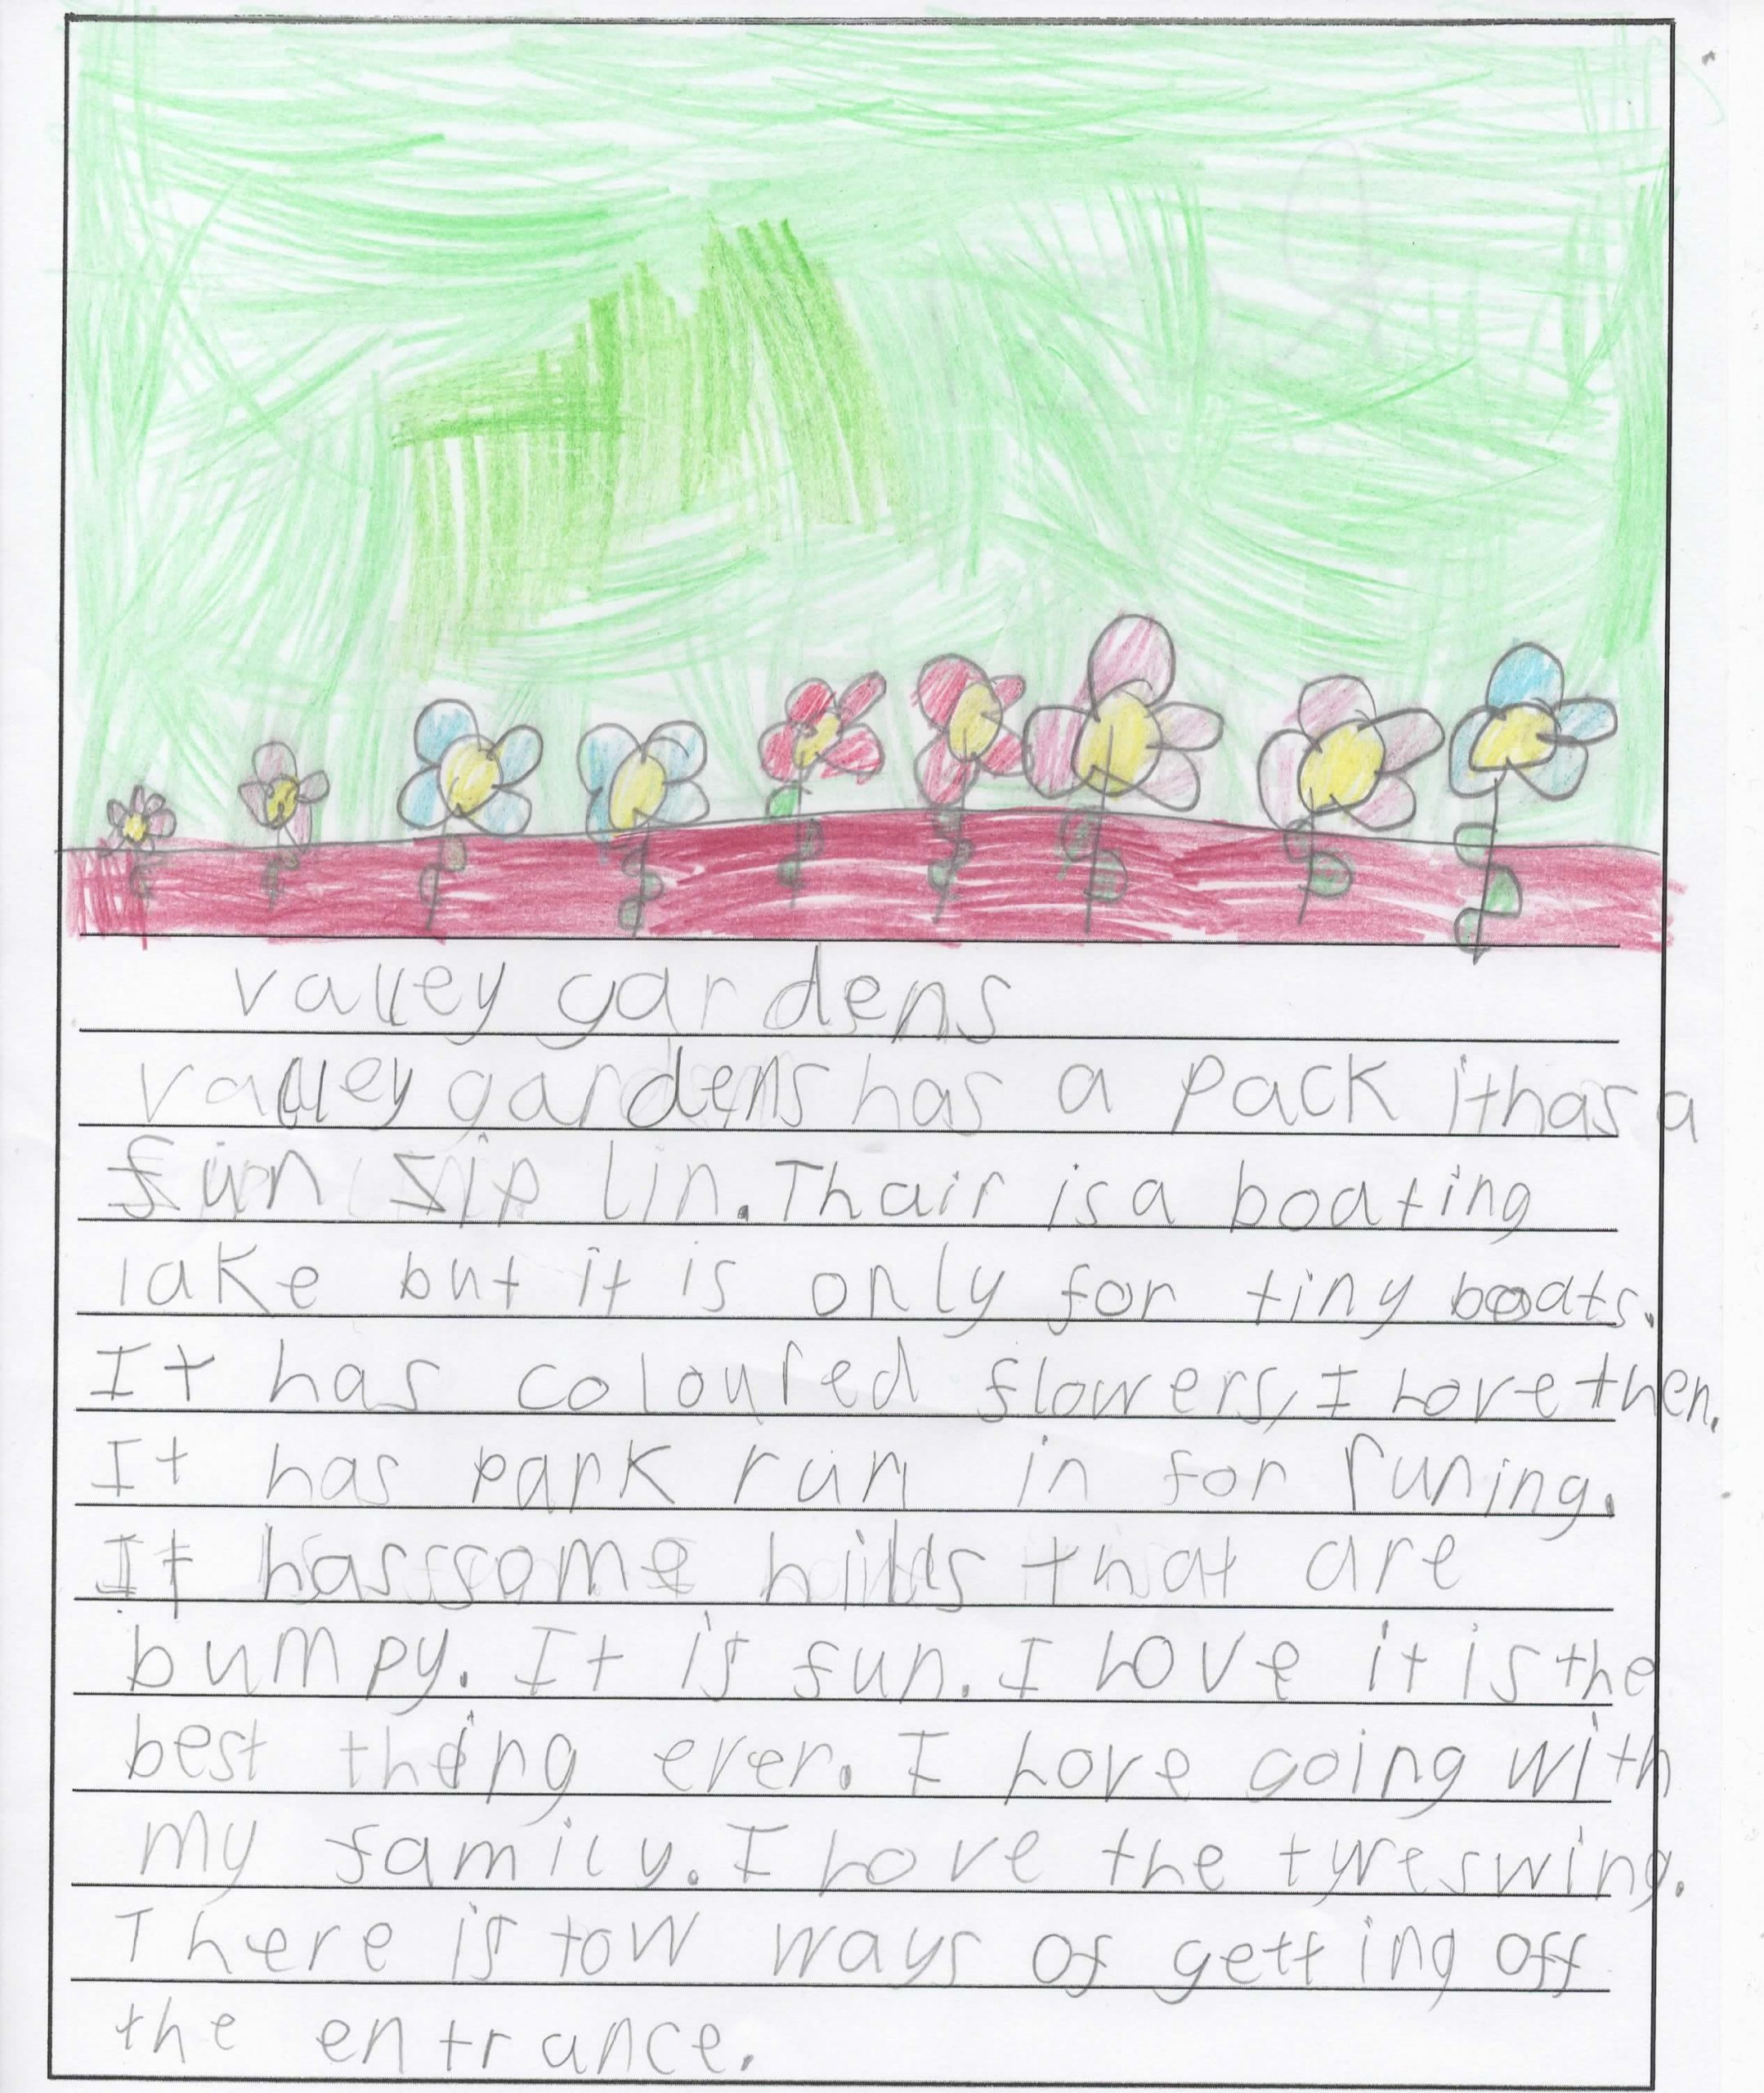 valley gardens
valley gardens has a pack it has a
fun zip lin. Thair is a boating
lake but it is only for tiny boats.
It has coloured flowers, I Love then.
It has park run in for runing.
It has some hills that are
bumpy. It is fun. I Love it is the
best thing ever. I Love going with
my family. I Love the tyre swing.
There is tow ways of getting off
the entrance.